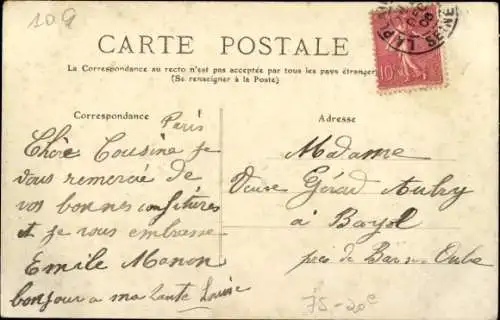 10 G
CARTE POSTALE
La Correspondance au recto n'est pas acceptée par tous les pays étrangers
(Se renseigner à la Poste)
Correspondance
Paris
Chère Cousine je
vous remercie de
vos bonnes confitures
et je vous embrasse
Emile Manon
bonjour a ma tante Louise
Adresse
Madame
Veuve Gérard Aubry
à Bayel
près de Bar sur Aube
10
LA PL
SEINE
06
75-20e